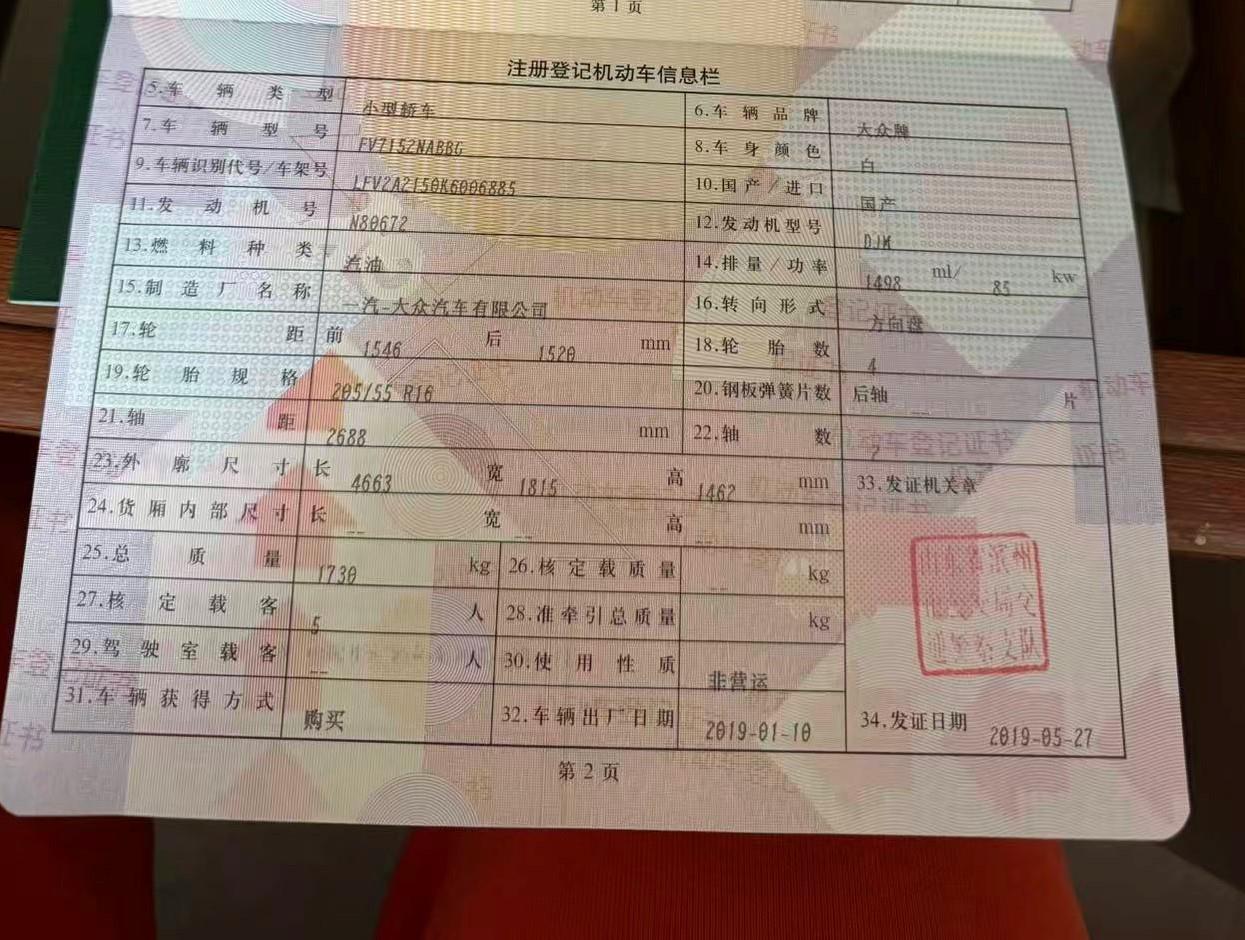 第 1 页
注册登记机动车信息栏
5.车辆类型 小型轿车 6.车辆品牌 大众牌
7.车辆型号 FV7152NABBG 8.车身颜色 白
9.车辆识别代号/车架号 LFV2A2150K6006885 10.国产/进口 国产
11.发动机号 N80672 12.发动机型号 DJM
13.燃料种类 汽油 14.排量/功率 1498 ml/ 85 kw
15.制造厂名称 一汽-大众汽车有限公司 16.转向形式 方向盘
17.轮距 前 1546 后 1520 mm 18.轮胎数 4
19.轮胎规格 205/55 R16 20.钢板弹簧片数 后轴 -- 片
21.轴距 2688 mm 22.轴数 2
23.外廓尺寸 长 4663 宽 1815 高 1462 mm 33.发证机关章
24.货厢内部尺寸 长 -- 宽 -- 高 -- mm
25.总质量 1730 kg 26.核定载质量 -- kg
27.核定载客 5 人 28.准牵引总质量 kg
29.驾驶室载客 -- 人 30.使用性质 非营运
31.车辆获得方式 购买 32.车辆出厂日期 2019-01-10 34.发证日期 2019-05-27
第 2 页